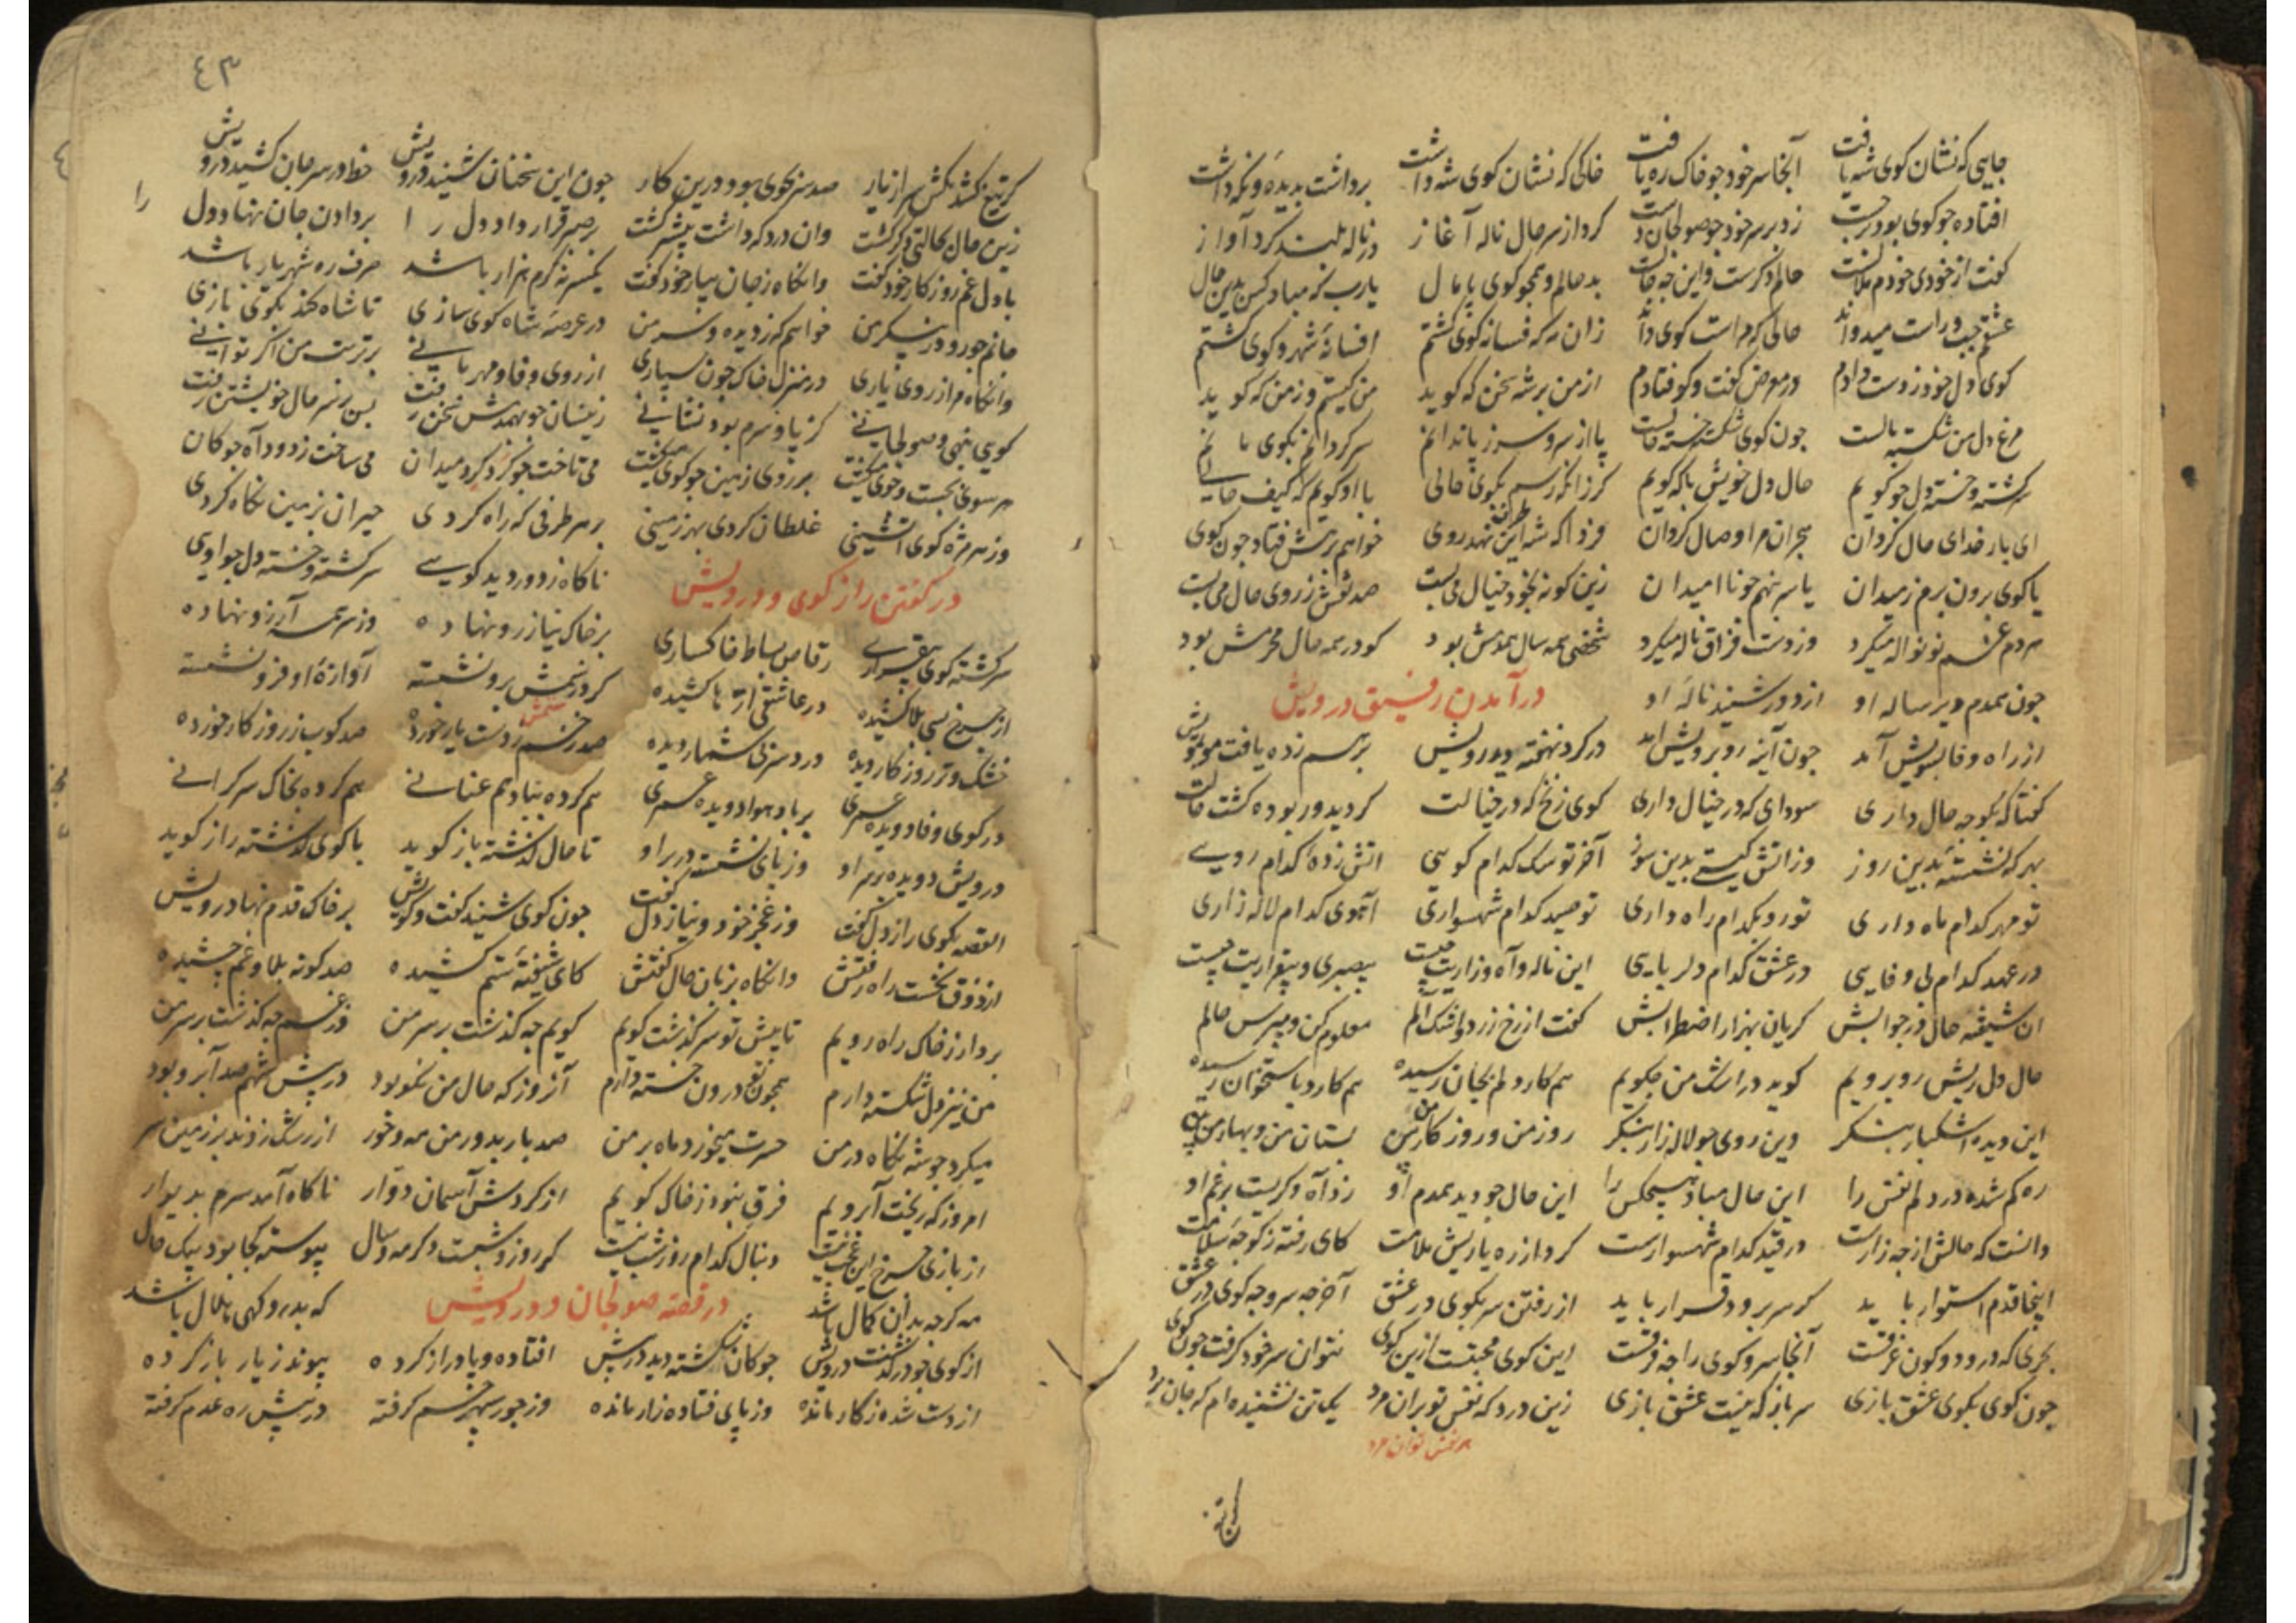 جایی که نشان کوی شه یافت آنجا سر خود چو خاک ره یافت خاکی که نشان کوی شه داشت برداشت بدیده و نکه داشت
افتاده چو کوی بود برجست زد بر سر خود چو صولجان دست کرد از سر حال ناله آغاز در ناله بلند کرد آواز
کفت از خودی خودم ملالست حالم دکرست و این چه حالست بد حالم و همچو کوی پامال یارب که مباد کس بدین حال
عشقم چپ و راست میدواند حالی که مراست کوی داند زان مه که فسانه کوی کشتم افسانهٔ شهر و کوی کشتم
کوی دل خود ز دست دادم در معرض کفت و کو فتادم از من بر شه سخن که کوید من کیستم و ز من که کوید
مرغ دل من شکسته بالست چون کوی شکسته خسته حالست پا از سر و سر ز پا ندانم سر کردانم بکوی مانم
سرکشته و خسته دل چو کویم حال دل خویش با که کویم کر زانکه رسم بکوی حالی با او کویم که کیف حالی
ای بار خدای حال کردان هجران مرا وصال کردان فردا که شه این طرف نهد روی خواهم برهش فتاد چون کوی
یا کوی برون برم ز میدان یا سر بنهم چو ناامیدان زین کونه بخود خیال می بست صد نقش ز روی حال می بست
هر دم غم نو نواله میکرد وز دست فراق ناله میکرد شخصی همه سال همدمش بود کو در همه حال محرمش بود
چون همدم دیرساله او از دور شنید نالهٔ او در آمدن رفیق درویش
از راه وفا بسویش آمد چون آینه روبرویش آمد در کرد نهفته دید رویش برهم زده یافت مو بمویش
کفتا که بکو چه حال داری سودای که در خیال داری کوی زنخ که در خیالت کردید و ربوده کشت حالت
بهر که نشستهٔ بدین روز وز آتش کیستی بدین سوز آخر تو سک کدام کویی آتش زدهٔ کدام رویی
تو مهر کدام ماه داری تو رو بکدام راه داری تو صید کدام شهسواری آهوی کدام لاله زاری
در عهد کدام بی وفایی در عشق کدام دلربایی این ناله و آه و زاریت چیست بیصبری و بیقراریت چیست
ان شیفته حال در جوابش کریان بهزار اضطرابش کفت از رخ زرد و اشک آلم معلوم کن و مپرس حالم
حال دل ریش روبرویم کوید در اشک من چکویم هم کارد دلم بجان رسیده هم کارد باستخوان رسیده
این دیده اشکبار بنکر وین روی چو لاله زار بنکر روز من و روزکار من بین بستان من و بهار من بین
ره کم شده در دلم نفس را این حال مباد هیچکس را این حال چو دید همدم او زد آه و کریست بر غم او
دانست که حالش از چه زارست در قید کدام شهسوارست کرد از ره یاریش ملامت کای رفته ز کوچه سلامت
اینجا قدم استوار باید کر سر برود قرار باید از رفتن سر بکوی در عشق آخر چه سر و چه کوی در عشق
بحری که درو دو کون غرقست آنجا سر و کوی را چه فرقست این کوی محبتست ازین کوی نتوان سر خود کرفت چون کوی
چون کوی بکوی عشق بازی سر باز که نیست عشق بازی زین درد که نفس تو بران مرد یک تن نشنیده ام که جان برد
هر نفس توان مرد
٤٣
کر تیغ کشد مکش سر از یار صد سر بجوی بود درین کار چون این سخنان شنید درویش خط در سر جان کشید درویش
زین حال بحالتی دکر کشت وان درد که داشت بیشتر کشت بر صبر قرار داد دل را بر دادن جان نهاد دل را
با دل غم روزکار خود کفت وانکاه ز جان سپار خود کفت یکسر نه کرم هزار باشد صرف ره شهریار باشد
جانم چو رود ز پیکر من خواهم که ز دیده و سر من در عرصهٔ شاه کوی سازی تا شاه کند بکوی بازی
وانکاه مرا ز روی یاری در منزل خاک چون سپاری از روی وفا و مهربانی بر تربت من اکر توانی
کویی بنهی و صولجانی کز پا و سرم بود نشانی زینسان چو بهمدمش سخن رفت بس زمزمه حال خویشتن رفت
هر سوی بجست و جوی میکشت بر روی زمین چو کوی میکشت می تاخت چو کرد کرد میدان می ساخت ز دود آه چوکان
وز هر مژه کوی آتشینی غلطان کردی بهر زمینی بر هر طرفی که راه کردی حیران بزمین نکاه کردی
در کفتن راز کوی و درویش ناکاه ز دور دید کویی سرکشته و خسته دل چو اویی
سرکشته کوی بیقراری رقاص بساط خاکساری بر خاک نیاز رو نهاده وز سر همه آرزو نهاده
از چرخ بسی بلا کشیده در عاشقی ارّها کشیده کرد ز نمش برو نشسته آوازهٔ او فرو نشسته
خشک و تر روزکار دیده درد سر بی شمار دیده صد زخم ز دست یار خورده صد کوب ز روزکار خورده
در کوی وفا دویده عمری بر باد هوا دویده عمری هم کرده بباد هم عنانی هم کرده بخاک سرکرانی
درویش دویده بر سر او وز پای نشسته در بر او تا حال کذشته باز کوید با کوی کذشته راز کوید
القصه بکوی راز دل کفت وز عجز خود و نیاز دل کفت چون کوی شنید کفت و کویش بر خاک قدم نهاد رویش
از ذوق نخست راه رفتش وانکاه بزبان حال کفتش کای شیفتهٔ ستم کشیده صد کونه بلا و غم چشیده
بردار ز خاک راه رویم تا پیش تو سرکذشت کویم کویم چه کذشت بر سر من وز غم چه کذشت بر سر من
من نیز دل شکسته دارم همچون تو درون خسته دارم آنروز که حال من نکو بود در پیش شهم صد آبرو بود
میکرد چو شه نکاه در من حسرت میخورد ماه بر من صد بار بدور من مه و خور از رشک زدند بر زمین سر
امروز که ریخت آبرویم فرق بنبود ز خاک کویم از کردش آسمان دوار ناکاه آمد سرم بدیوار
از بازی چرخ این عجب نیست دنبال کدام روز شب نیست کر روز و شبست و کر مه و سال پیوسته کجا بود بیک حال
مه کرچه بدان کمال باشد در قصه صولجان و درویش که بدر و کهی هلال باشد
از کوی چو در کذشت درویش چوکان شکسته دید در پیش افتاده و پا دراز کرده پیوند ز یار باز کرده
از دست شده ز کار مانده وز پای فتاده زار مانده وز جور سپهر خم کرفته در پیش ره عدم کرفته